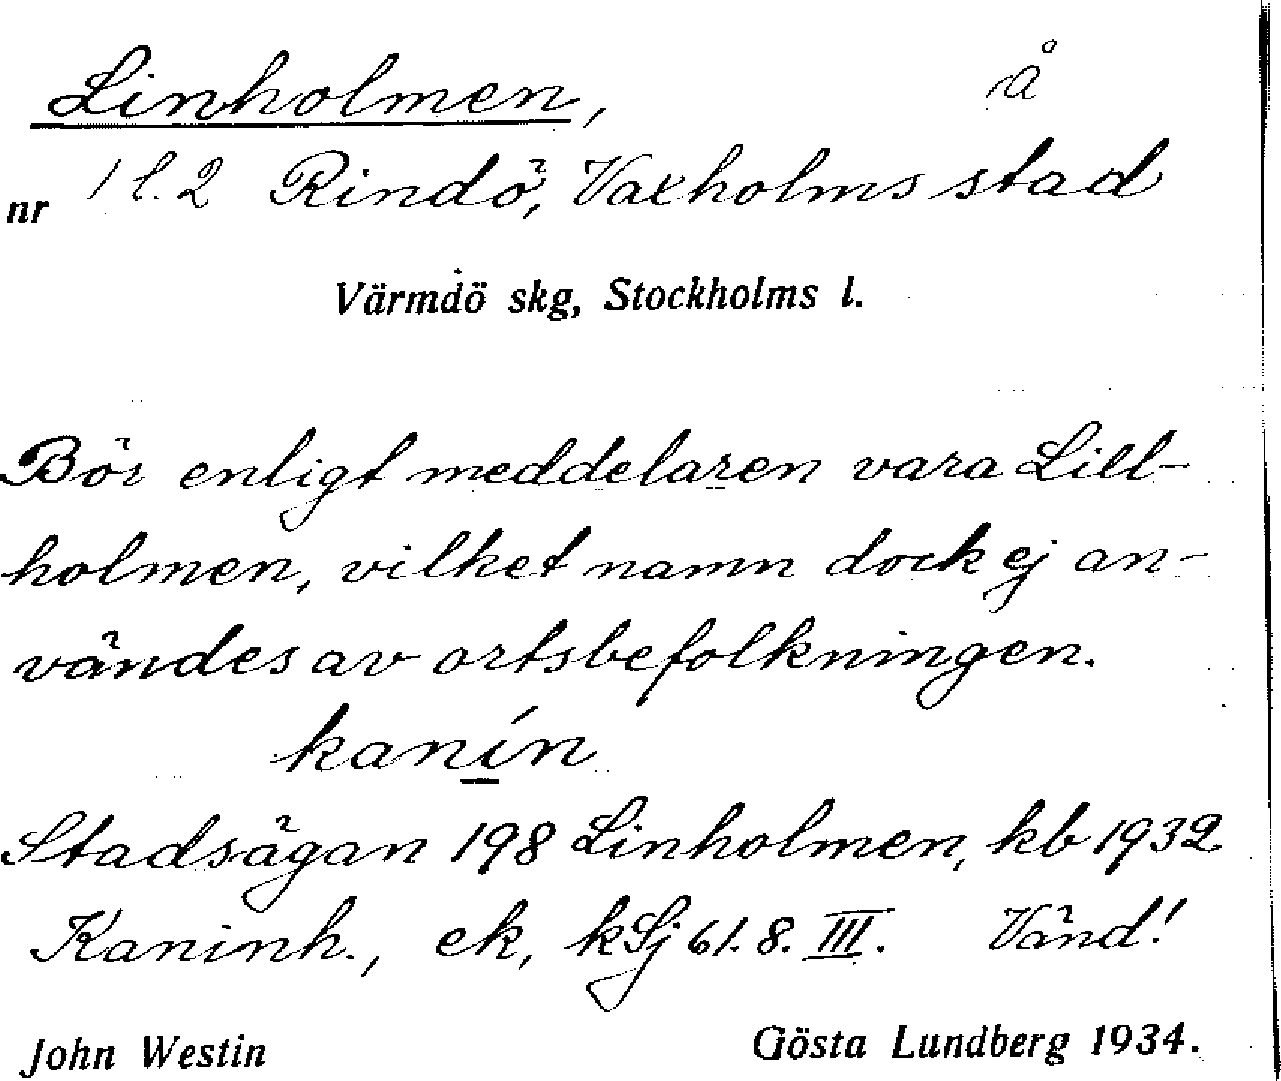 Linholmen, å
nr 1 l. 2 Rindö, Vaxholms stad
Värmdö skg, Stockholms l.
Bör enligt meddelaren vara Lill-
holmen, vilket namn dock ej an-
vändes av ortsbefolkningen.
kanín
Stadsägan 198 Linholmen, kb 1932
Kaninh., ek, kSj 61. 8. III. Vänd!
John Westin Gösta Lundberg 1934.